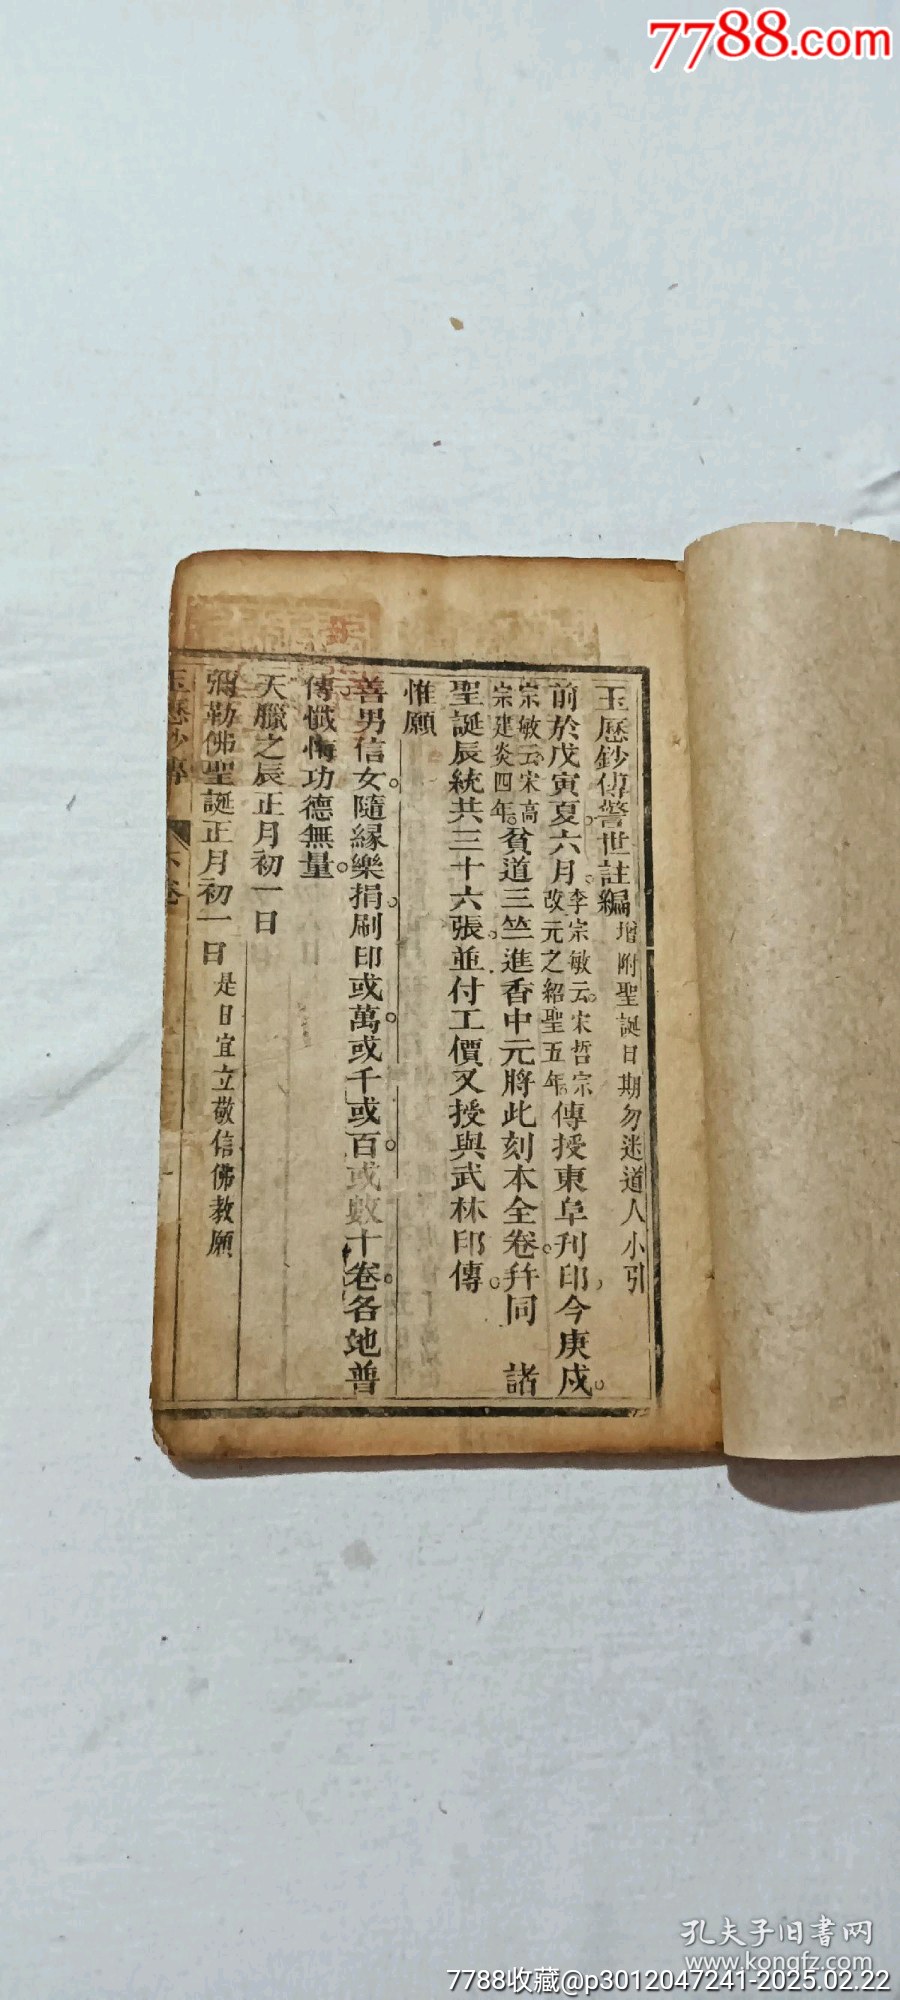 7788.com
玉歷鈔傳警世註編 增附聖誕日期勿迷道人小引
前於戊寅夏六月。李宗敏云。宋哲宗改元之紹聖五年。傳授東阜刊印今庚戌。
宗敏云宋高宗建炎四年。貧道三竺進香中元將此刻本全卷。幷同 諸
聖誕辰統共三十六張。並付工價又授與武林印傳。
惟願
善男信女。隨緣樂捐。刷印或萬。或千或百。或數十卷。各地普
傳懺悔功德無量。
天臘之辰正月初一日
彌勒佛聖誕正月初一日 是日宜立敬信佛教願
玉歷鈔傳 下卷
孔夫子旧書网
www.kongfz.com
7788收藏@p3012047241-2025.02.22